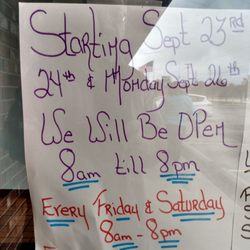 Starting Sept 23RD
24th & Monday Sept 26th
We Will Be Open
8am till 8pm
Every Friday & Saturday
8am - 8pm